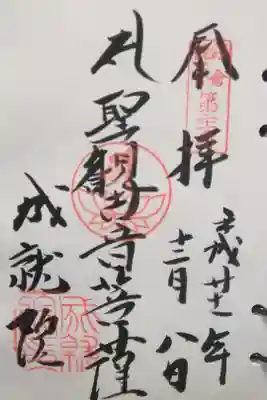 奉拝
鎌倉第
平成廿年
十二月八日
札聖観世音菩薩
成就院